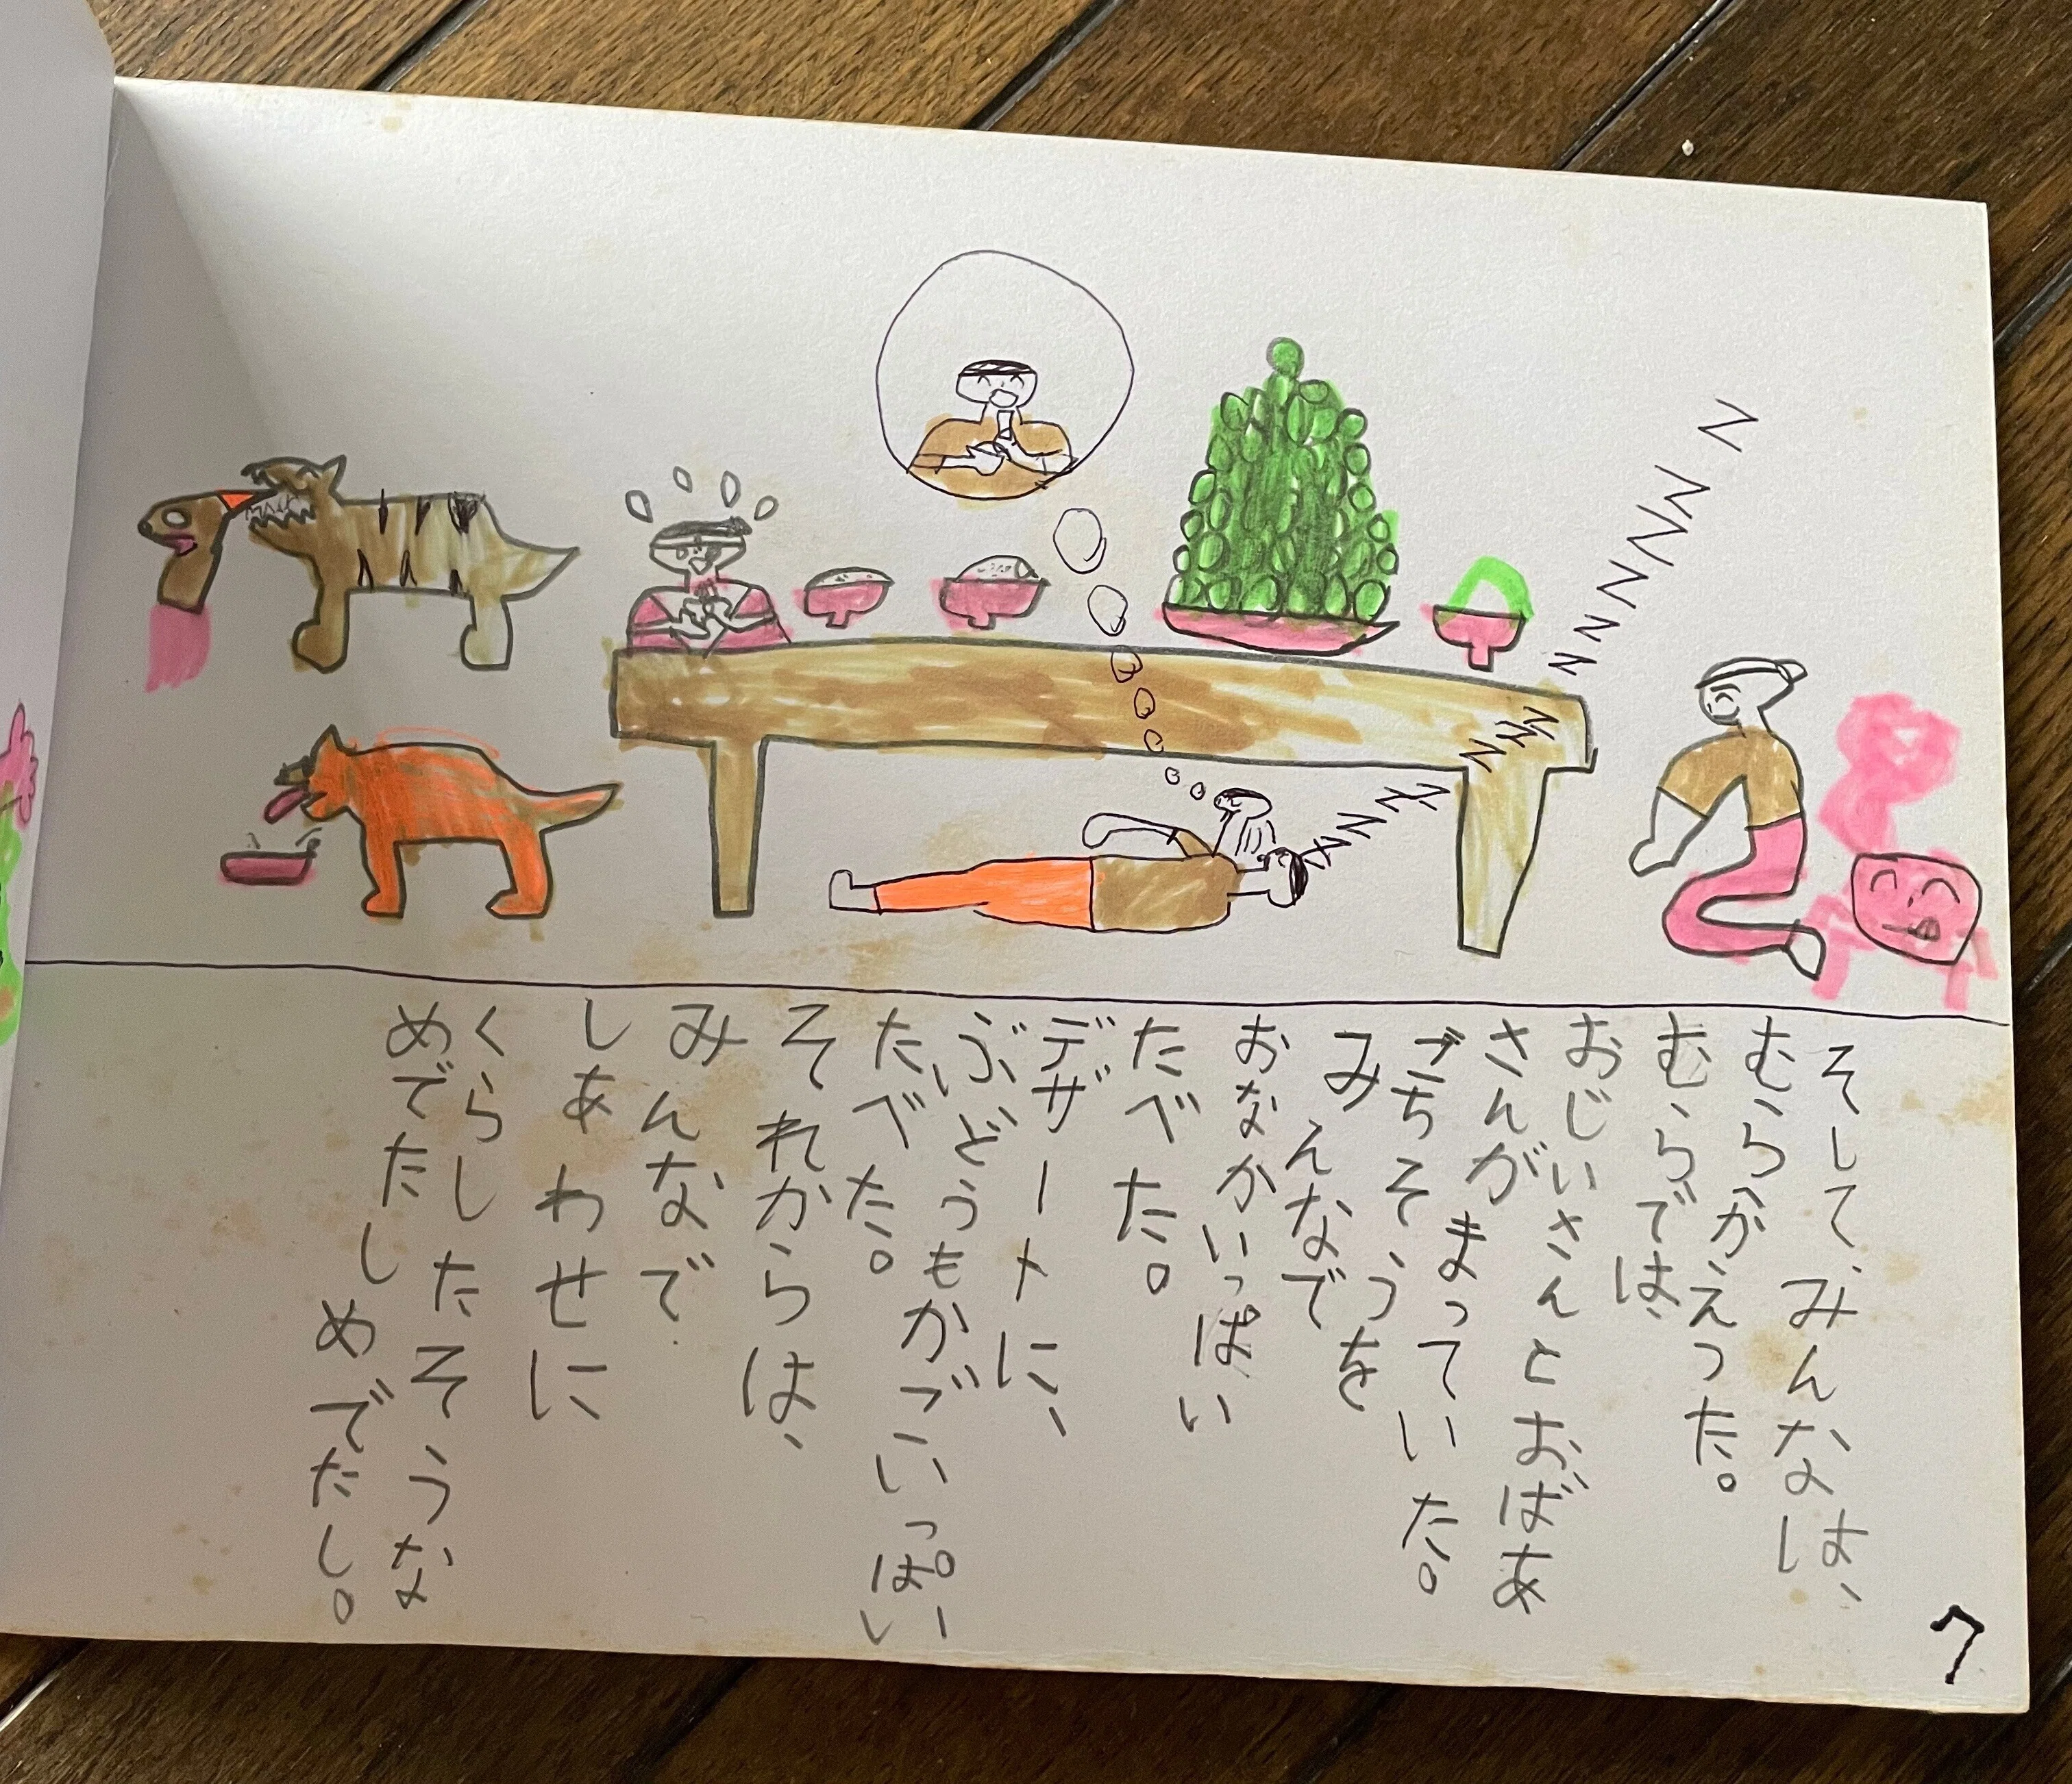 そして、みんなは、
むらかえった。
むらでは、
おじいさんとおばあ
さんがまっていた。
ごちそうを
みんなで
おなかいっぱい
たべた。
デザートに、
ぶどうもかごいっぱい
たべた。
それからは、
みんなで
しあわせに
くらしたそうな
めでたしめでたし。
7